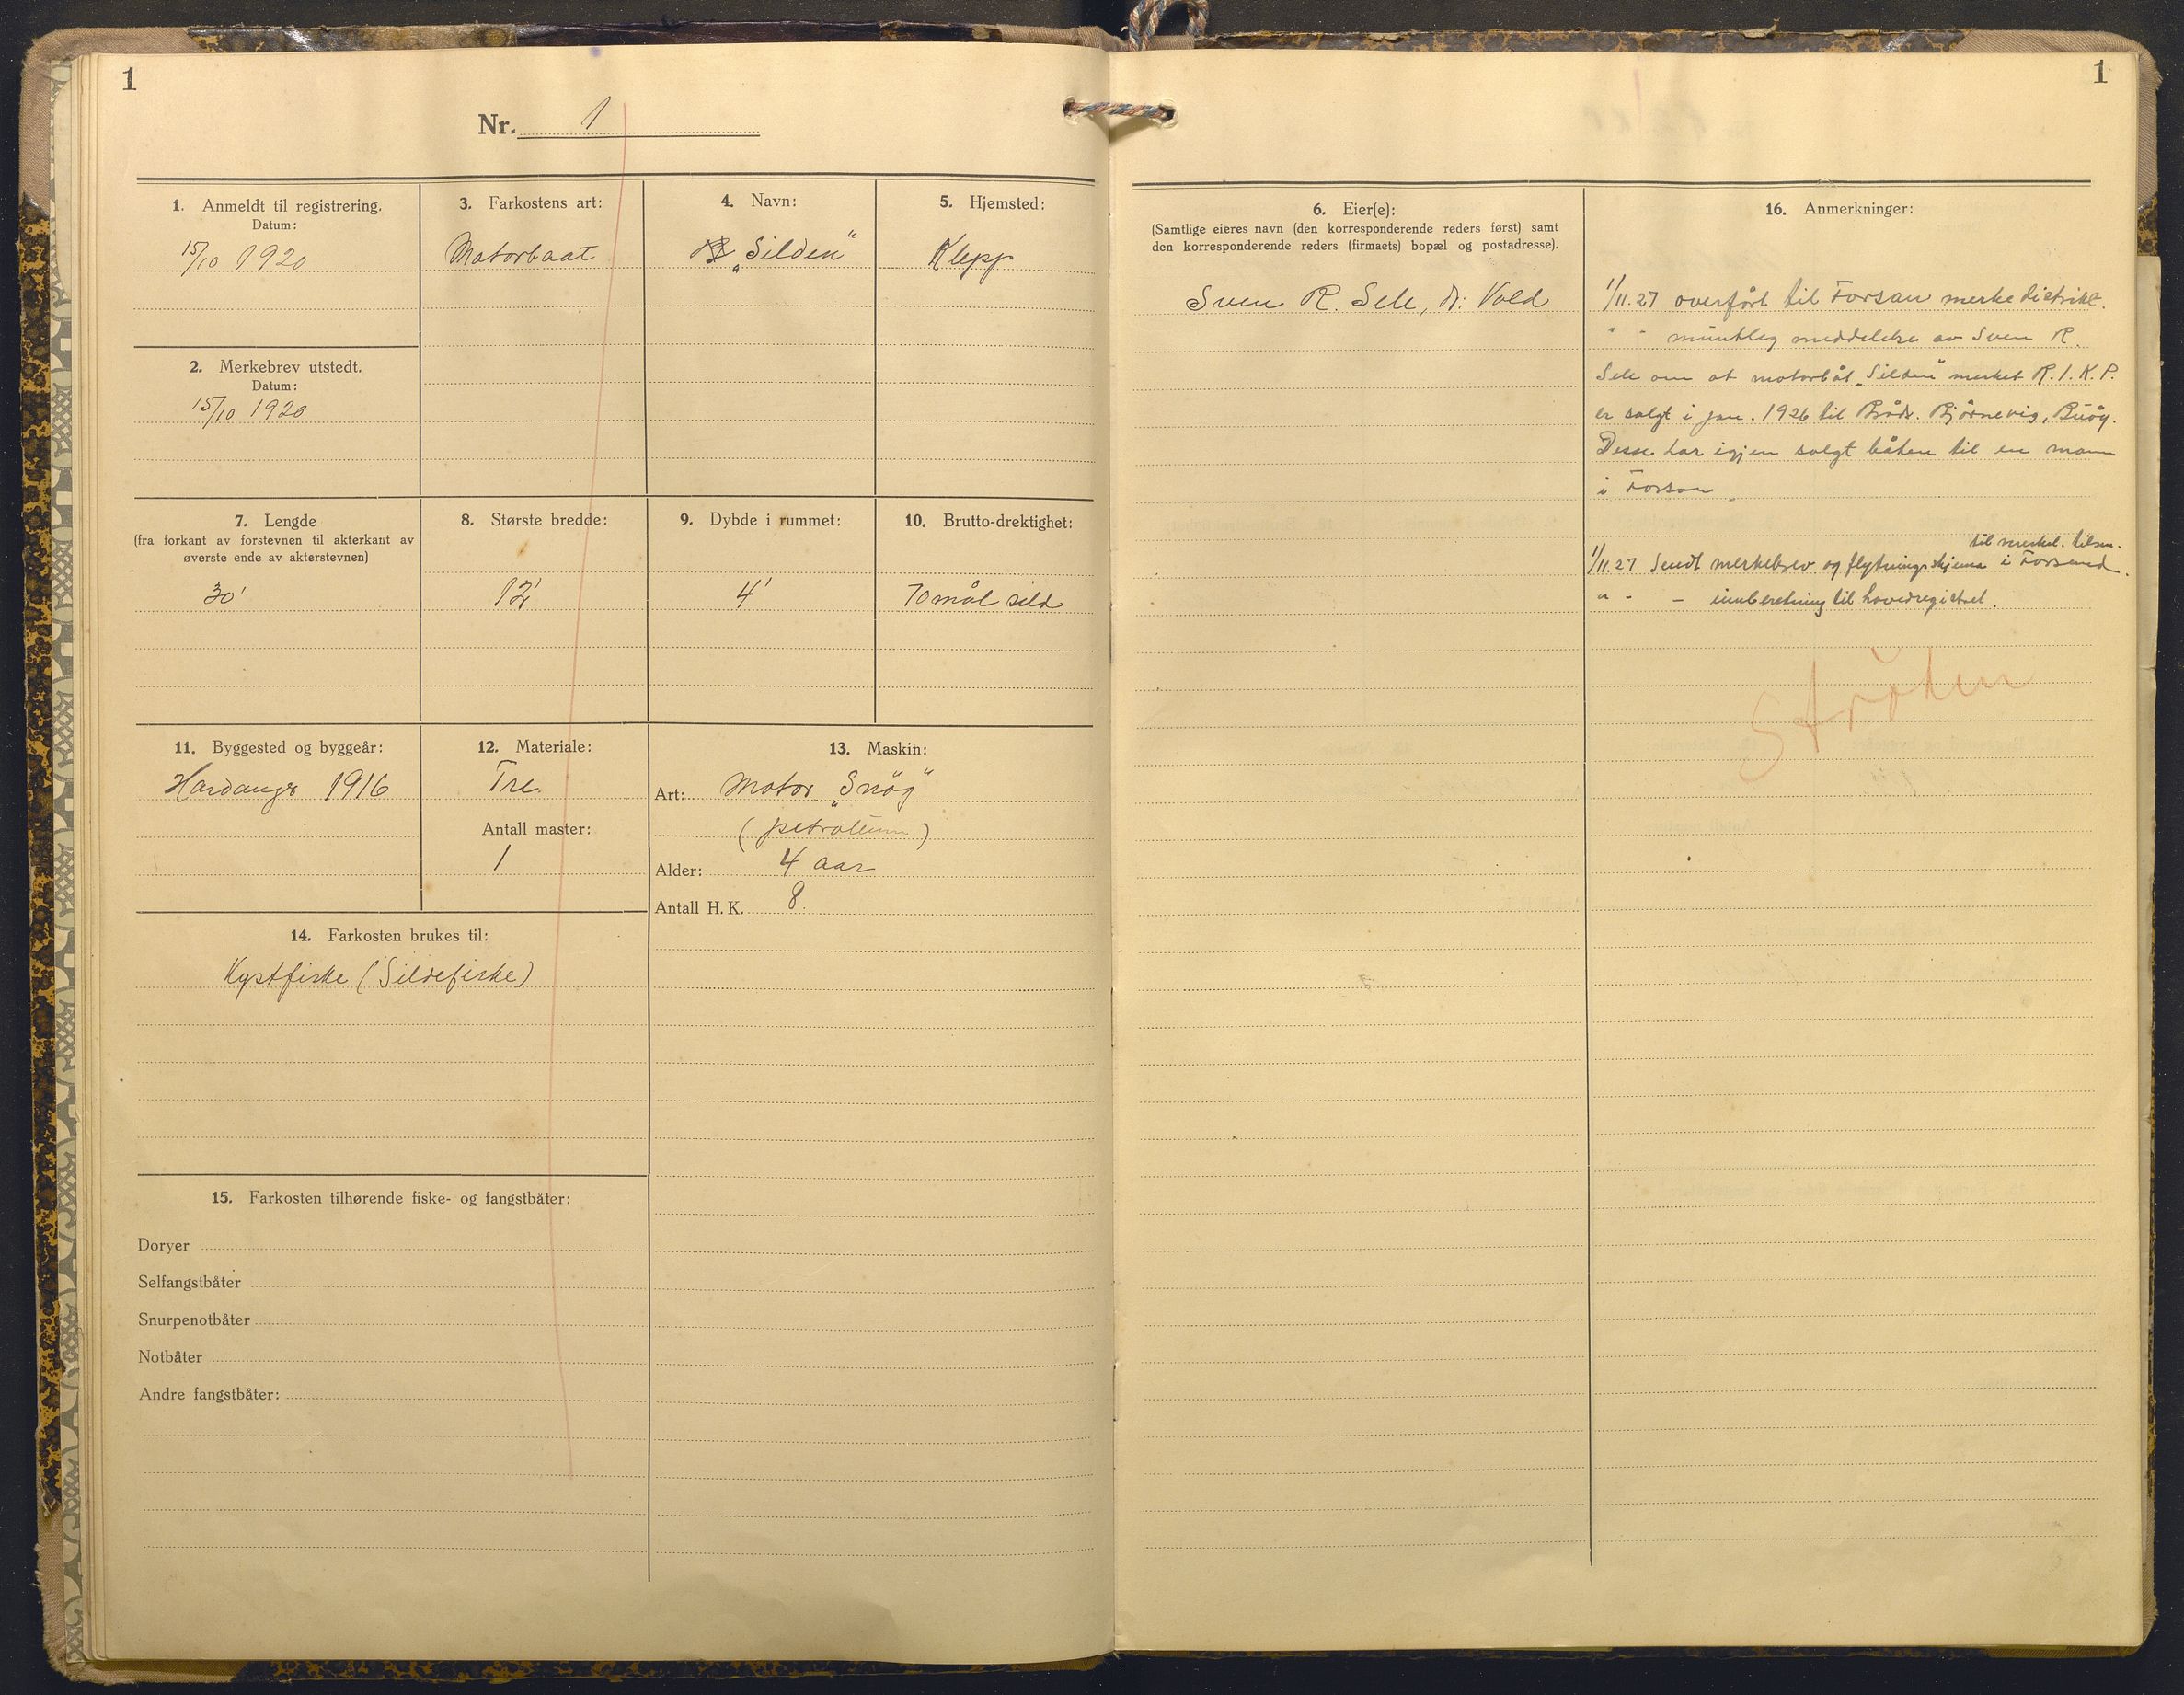 1
Nr. 1
1. Anmeldt til registrering.
Datum:
15/10 1920
2. Merkebrev utstedt.
Datum:
15/10 1920
3. Farkostens art:
Motorbaat
4. Navn:
„Silden“
5. Hjemsted:
Klepp
7. Lengde
(fra forkant av forstevnen til akterkant av
øverste ende av akterstevnen)
30'
8. Største bredde:
12'
9. Dybde i rummet:
4'
10. Brutto-drektighet:
70 mål sild
11. Byggested og byggeår:
Hardanger 1916
12. Materiale:
Tre.
Antall master:
1
13. Maskin:
Art: Motor „Snøg“
(petroleum)
Alder: 4 aar
Antall H. K. 8.
14. Farkosten brukes til:
Kystfiske (Sildefiske)
15. Farkosten tilhørende fiske- og fangstbåter:
Doryer
Selfangstbåter
Snurpenotbåter
Notbåter
Andre fangstbåter:
1
6. Eier(e):
(Samtlige eieres navn (den korresponderende reders først) samt
den korresponderende reders (firmaets) bopæl og postadresse).
Sven R. Sele, Vold
16. Anmerkninger:
1/11.27 overført til Forsan merkedistrikt.
" " muntleg meddelelse av Sven R.
Sele om at motorbåt „Silden“ merket R. 1. K. P.
er solgt i jan. 1926 til Brødr. Bjørnevig, Buøy.
Desse har igjen solgt båten til en mann
i Forsan.
til merkel. tilsm.
1/11.27 Sendt merkebrev og flytningsskjema i Forsand.
" - — innberetning til hovedregistret.
Strøken